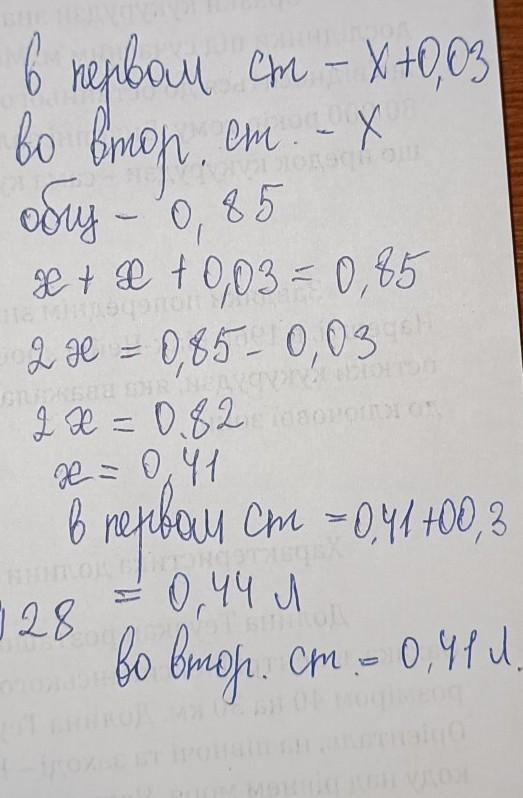 в первом ст - x+0,03
во втор. ст. - x
общ - 0,85
x + x + 0,03 = 0,85
2x = 0,85 - 0,03
2x = 0.82
x = 0,41
в первом ст = 0,41+00,3
= 0,44 л
28
во втор. ст. = 0,41 л.